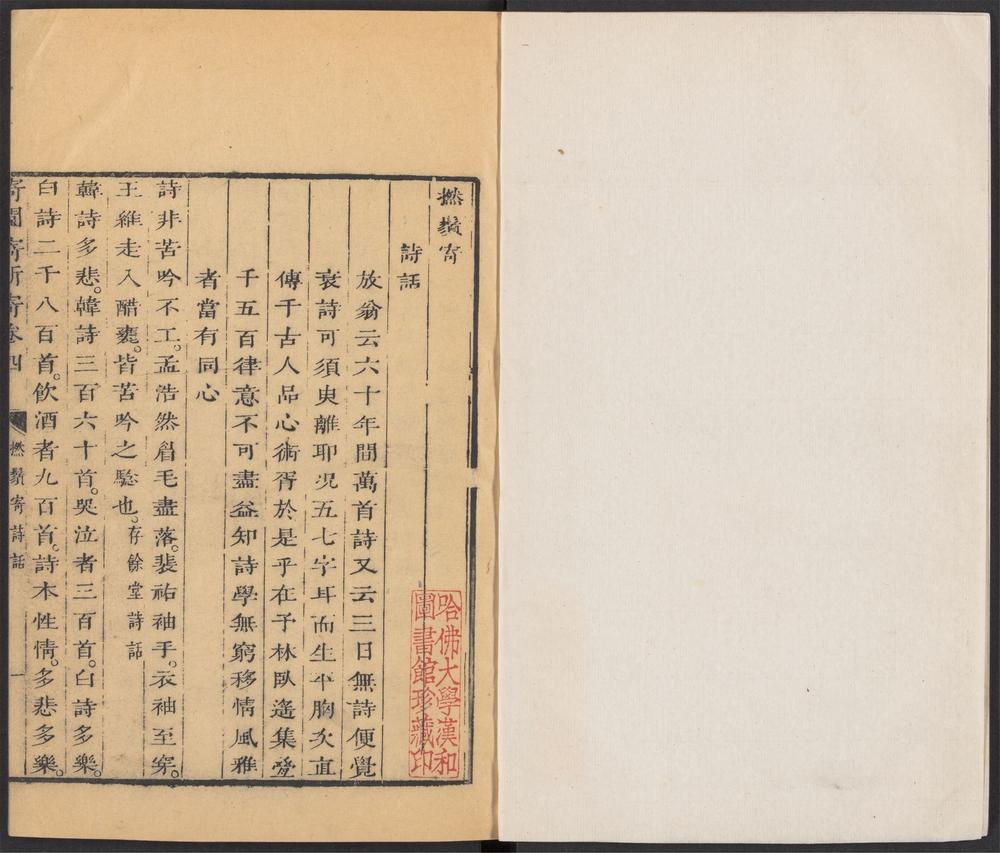 撚鬚寄
詩話
放翁云六十年間萬首詩又云三日無詩便覺
衰詩可須臾離耶況五七字耳而生平胸次直
傳千古人品心術胥於是乎在予林臥遙集登
千五百律意不可盡益知詩學無窮移情風雅
者當有同心
詩非苦吟不工。孟浩然眉毛盡落。裴祐袖手。衣袖至穿。
王維走入醋甕。皆苦吟之驗也。存餘堂詩話
韓詩多悲。韓詩三百六十首。哭泣者三百首。白詩多樂。
白詩二千八百首。飲酒者九百首。詩本性情。多悲多樂。
寄園寄所寄卷四 撚鬚寄詩話 一
哈佛大學漢和
圖書館珍藏印